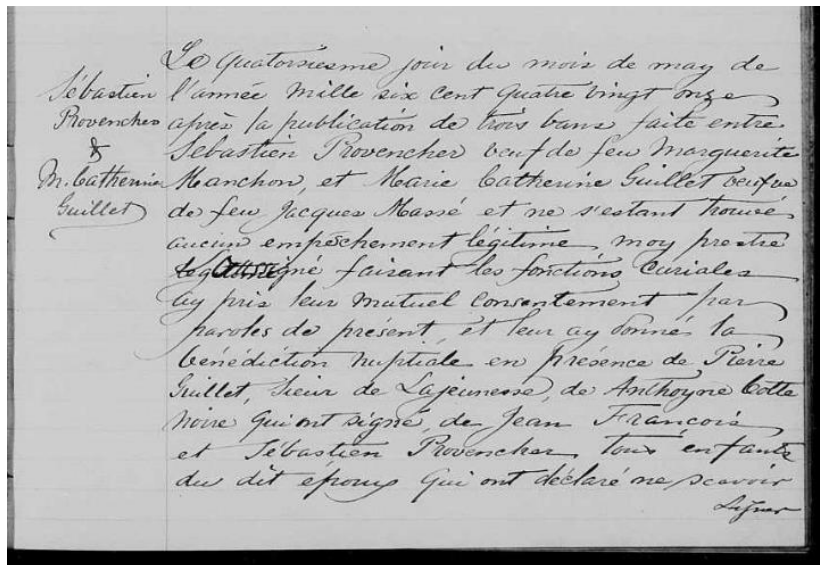 Le quatorsiesme jour du mois de may de
l'année mille six cent quatre vingt onze
après la publication de trois bans faite entre
Sébastien Provencher veuf de feu Marguerite
Manchon, et Marie Catherine Guillet veufve
de feu Jacques Massé et ne s'estant trouvé
aucun empeschement légitime, moy prestre
soussigné faisant les fonctions curiales
ay pris leur mutuel consentement par
paroles de présent, et leur ay donné la
bénédiction nuptiale en présence de Pierre
Guillet, Sieur de Lajeunesse, de Anthoyne Cotte
noire qui ont signé, de Jean François
et Sébastien Provencher, tous enfants
du dit époux qui ont déclaré ne scavoir
signer
Sébastien
Provencher
&
M. Catherine
Guillet